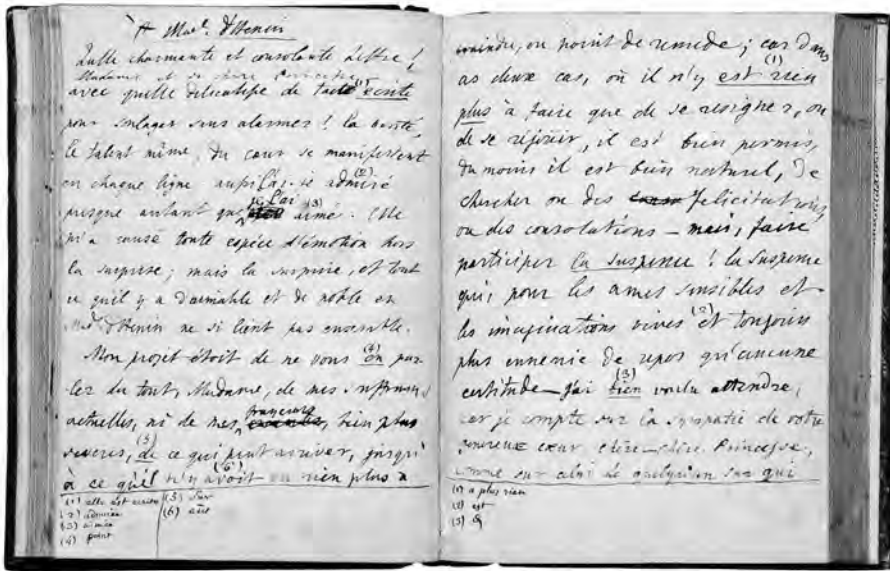 A Mad. d'Henin
Quelle charmante et consolante Lettre!
Madame et si chere Princesse
avec quelle delicatesse de tact (1) ecrite
pour soulager sans alarmer! la bonté,
le talent même, du cœur se manifestent
en chaque ligne aussi l'ai-je admiré (2)
presque autant que je l'ai aimé (3). Elle
m'a causé toute espèce d'émotion hors
la surprise; mais la surprise, et tout
ce qu'il y a d'aimable et de noble en
Mad. d'Henin ne se lient pas ensemble.
Mon projet étoit de ne vous en (4) par
ler du tout, Madame, de mes
actuelles, ni de mes frayeurs, bien plus
severes, (5) de ce qui peut arriver, jusqu'
à ce qu'il n'y avoit (6) ou rien plus a
(1) elle est ecrite
(2) admirée
(3) aimée
(4) point
(5) sur
(6) ait
craindre, ou point de remede; car dans
as deux cas, où il n'y est rien (1)
plus à faire que de se resigner, ou
de se rejouir, il est bien permis,
du moins il est bien naturel, de
chercher ou des felicitations
ou des consolations — mais, faire
participer la suspense! la suspense
qui, pour les ames sensibles et
les imaginations vives (2) et toujours
plus ennemie de repos qu'aucune
certitude — j'ai bien (3) voulu attendre,
car je compte sur la sympatie de votre
genereux cœur chère — chère Princesse,
comme sur celui de quelqu'un sur qui
(1) a plus rien
(2) est
(3)